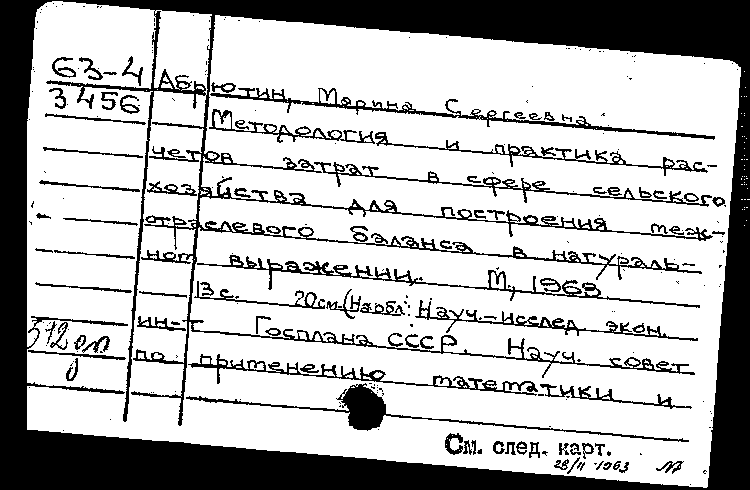 63-4
3456
Абрютин, Марина Сергеевна.
Методология и практика рас-
четов затрат в сфере сельского
хозяйства для построения меж-
отраслевого баланса в натураль-
ном выражении. М, 1963
13 с. 20см. (На обл: Науч.-исслед экон.
ин-т Госплана СССР. Науч. совет
по применению математики и
См. след. карт.
28/II 1963